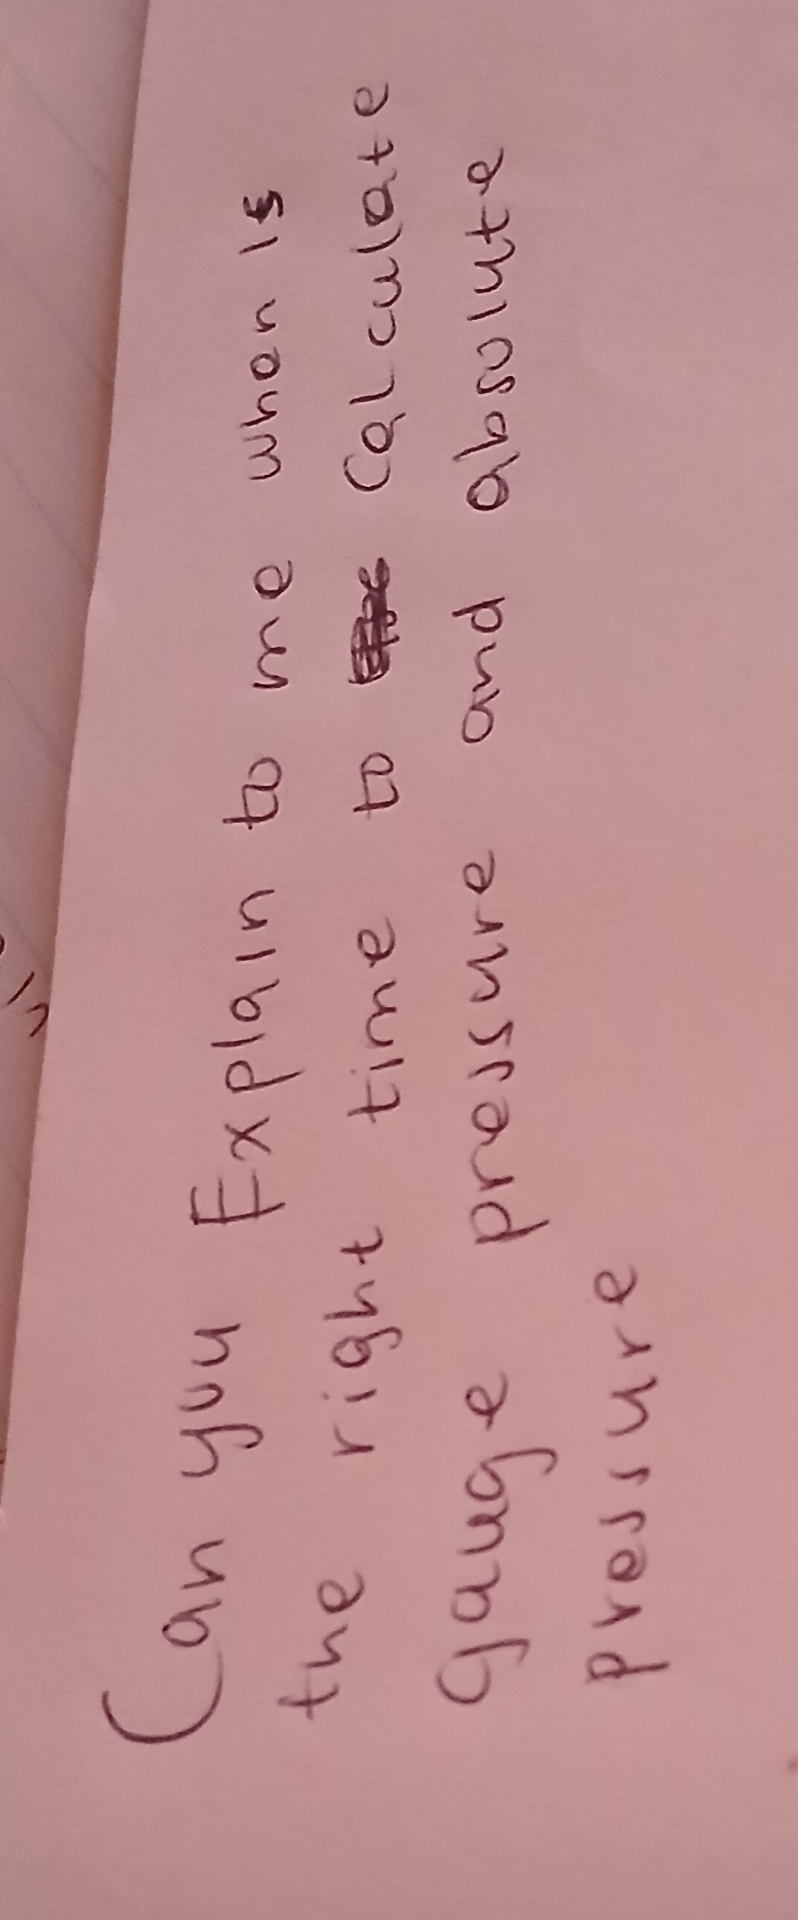 Can you Explain to me when is
the right time to calculate
gauge pressure and absolute
pressure